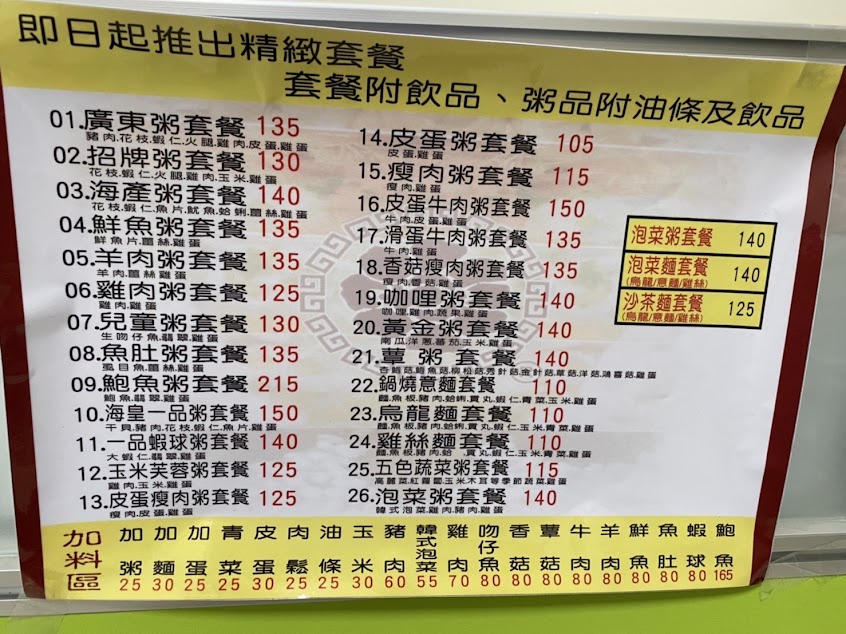 即日起推出精緻套餐
套餐附飲品、粥品附油條及飲品
01.廣東粥套餐 135
豬肉.花枝.蝦仁.火腿.雞肉.皮蛋.雞蛋
02.招牌粥套餐 130
花枝.蝦仁.火腿.雞肉.玉米.雞蛋
03.海產粥套餐 140
花枝.蝦仁.魚片.魷魚.蛤蜊.薑絲.雞蛋
04.鮮魚粥套餐 135
鮮魚片.薑絲.雞蛋
05.羊肉粥套餐 135
羊肉.薑絲.雞蛋
06.雞肉粥套餐 125
雞肉.雞蛋
07.兒童粥套餐 130
生吻仔魚.翡翠.雞蛋
08.魚肚粥套餐 135
虱目魚.薑絲.雞蛋
09.鮑魚粥套餐 215
鮑魚.翡翠.雞蛋
10.海皇一品粥套餐 150
干貝.豬肉.花枝.蝦仁.魚片.雞蛋
11.一品蝦球粥套餐 140
大蝦仁.翡翠.雞蛋
12.玉米芙蓉粥套餐 125
雞肉.玉米.雞蛋
13.皮蛋瘦肉粥套餐 125
瘦肉.皮蛋.雞蛋
14.皮蛋粥套餐 105
皮蛋.雞蛋
15.瘦肉粥套餐 115
瘦肉.雞蛋
16.皮蛋牛肉粥套餐 150
牛肉.皮蛋.雞蛋
17.滑蛋牛肉粥套餐 135
牛肉.雞蛋
18.香菇瘦肉粥套餐 135
瘦肉.香菇.雞蛋
19.咖哩粥套餐 140
咖哩雞肉.蔬果.雞蛋
20.黃金粥套餐 140
南瓜.洋蔥.蕃茄.玉米.雞蛋
21.蕈粥套餐 140
杏鮑菇.鮑魚菇.柳松菇.秀針菇.金針菇.草菇.洋菇.鴻喜菇.雞蛋
22.鍋燒意麵套餐 110
魚板.豬肉.蛤蜊.貢丸.蝦仁.青菜.玉米.雞蛋
23.烏龍麵套餐 110
魚板.豬肉.蛤蜊.貢丸.蝦仁.玉米.青菜.雞蛋
24.雞絲麵套餐 110
魚板.豬肉.蛤 .貢丸.蝦仁.玉米.青菜.雞蛋
25.五色蔬菜粥套餐 115
高麗菜.紅蘿蔔.玉米.木耳等季節蔬菜.雞蛋
26.泡菜粥套餐 140
韓式泡菜.雞肉.豬肉.雞蛋
泡菜粥套餐 140
泡菜麵套餐 140
(烏龍/意麵/雞絲)
沙茶麵套餐 125
(烏龍/意麵/雞絲)
加料區
加粥 25
加麵 30
加蛋 25
青菜 25
皮蛋 30
肉鬆 25
油條 25
玉米 30
豬肉 60
韓式泡菜 55
雞肉 70
吻仔魚 80
香菇 80
蕈菇 80
牛肉 80
羊肉 80
鮮魚 80
魚肚 80
蝦球 80
鮑魚 165